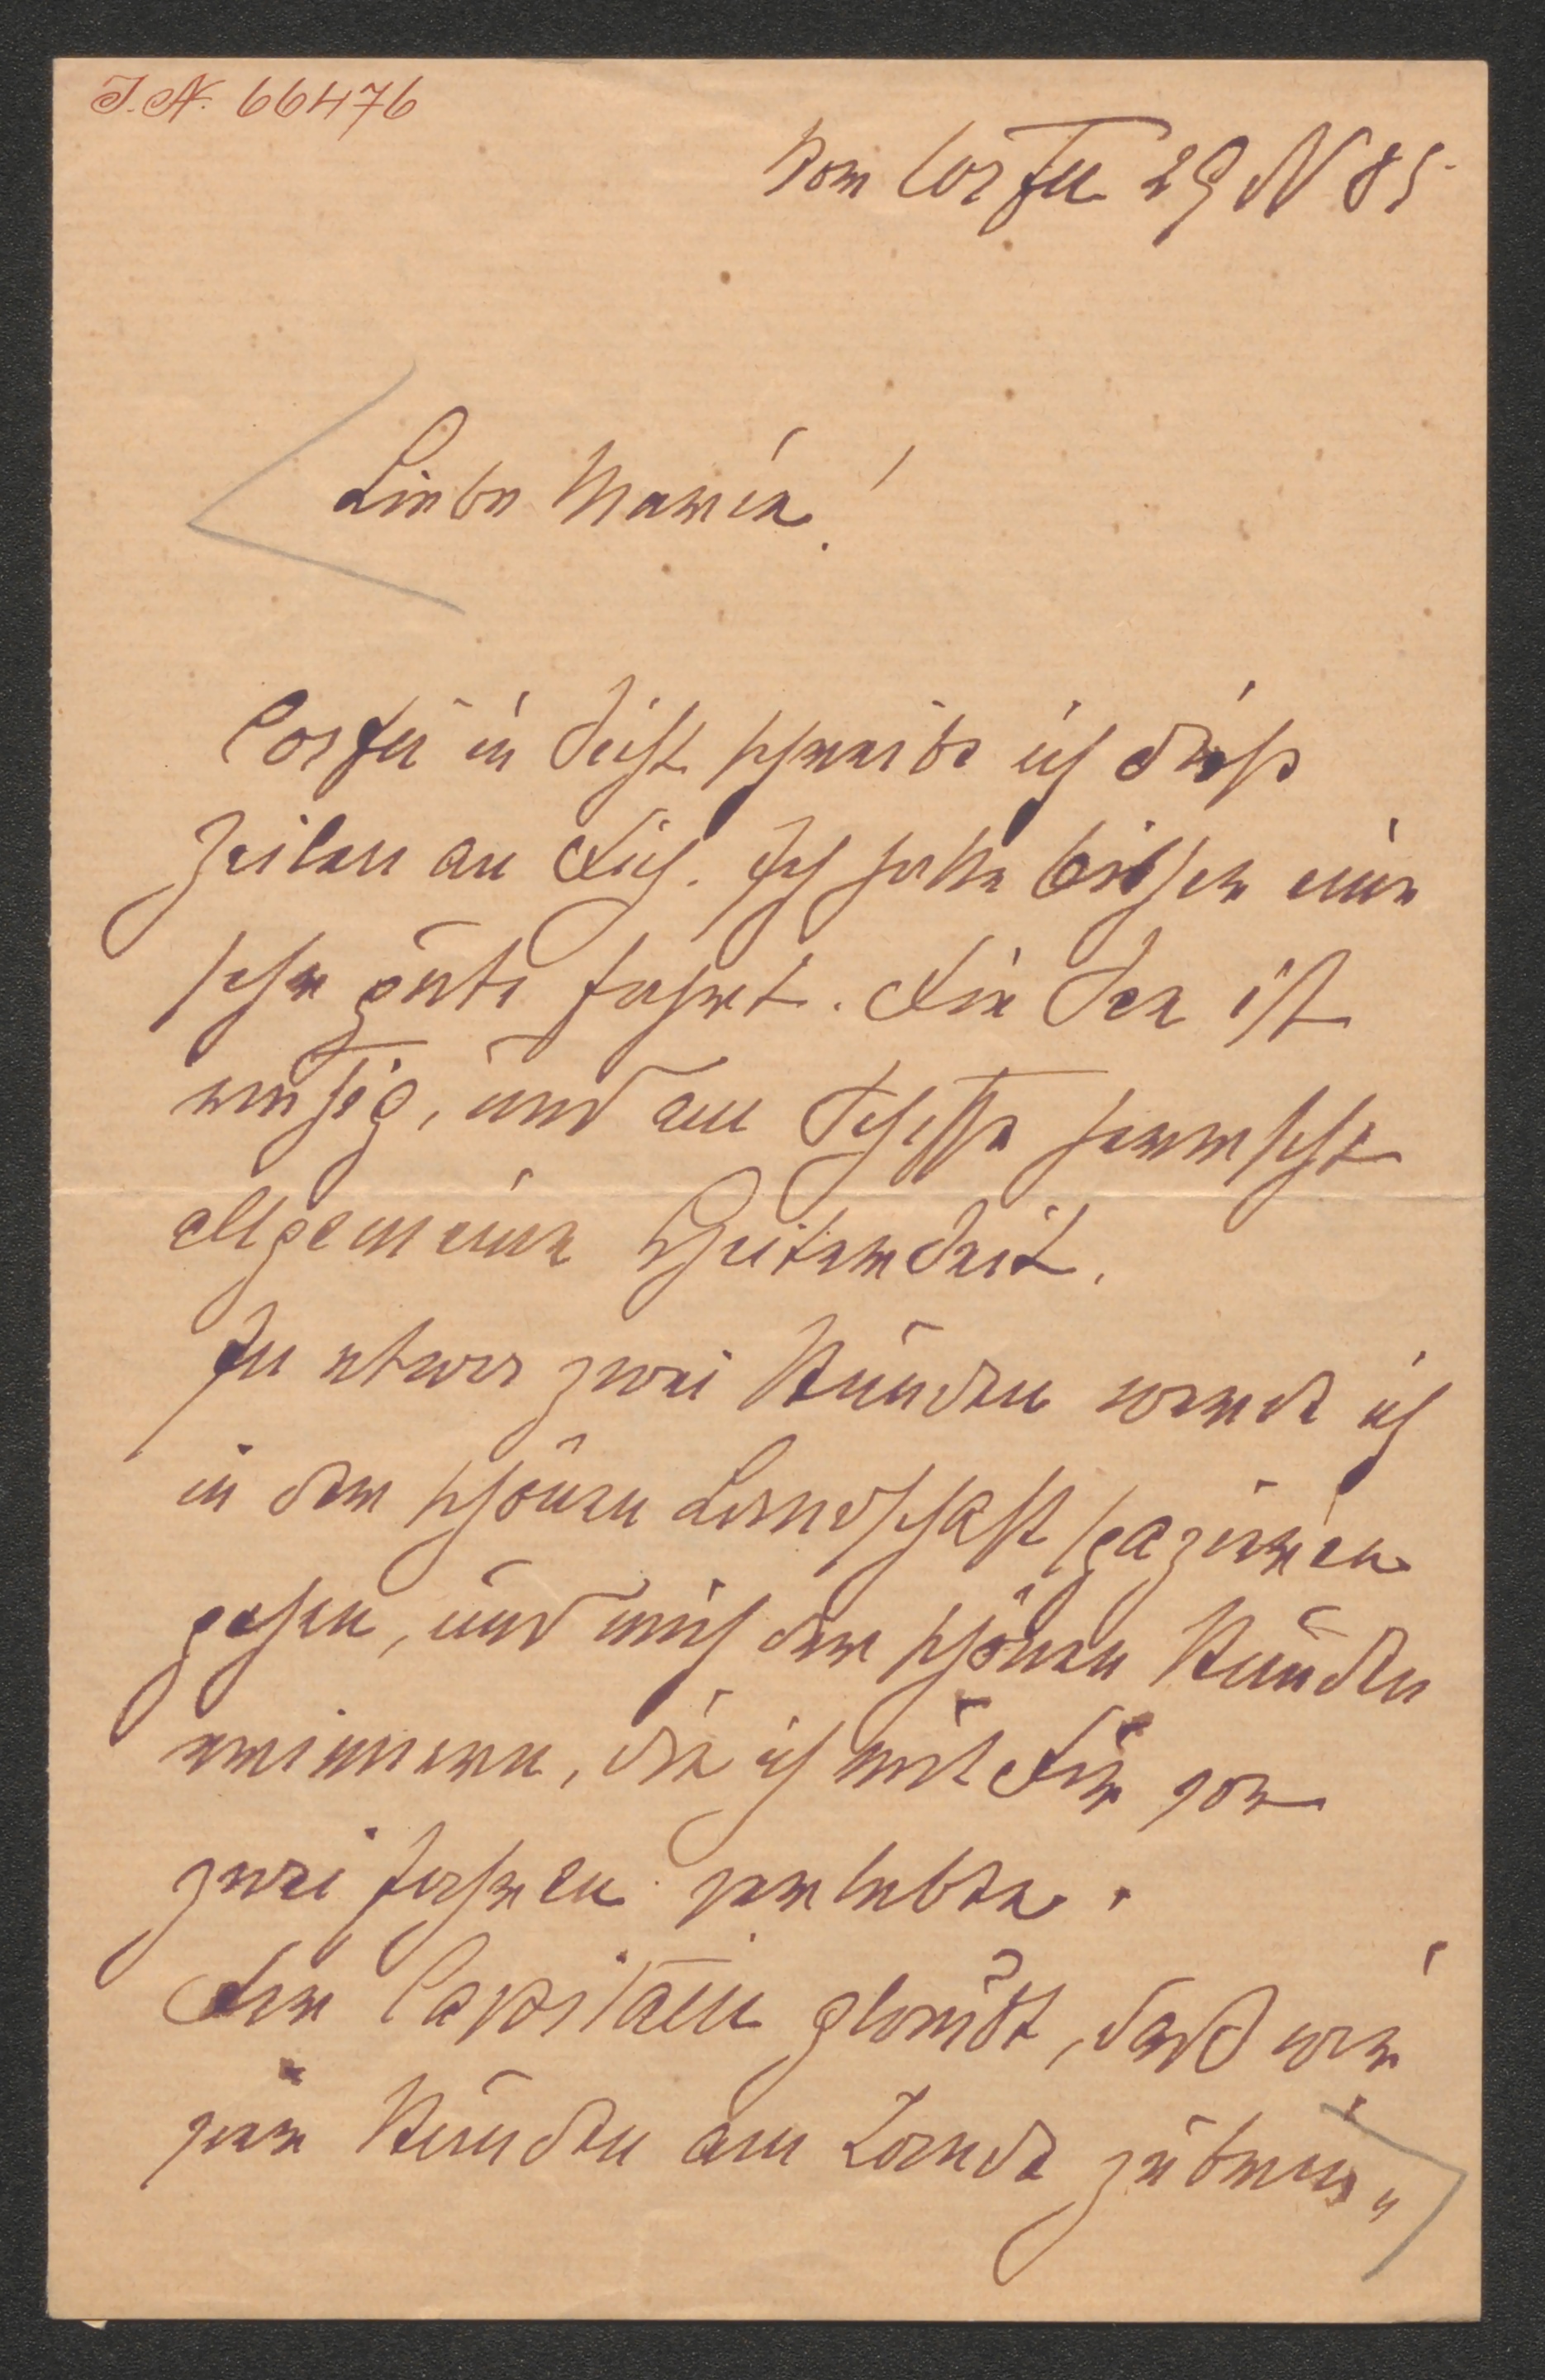 I.N. 66476
Vor Corfu 29 N 85
Liebe Marie!
Corfu in Sicht schreibe ich diese
Zeilen an Dich. Ich hatte bisher eine
sehr gute Fahrt. Die See ist
ruhig, und am Schiffe herrscht
allgemeine Heiterkeit.
In etwa zwei Stunden werde ich
in der schönen Landschaft spaziren
gehen, und mich der schönen Stunden
erinnern, die ich mit Dir vor
zwei Jahren verlebte.
Der Capitän glaubt, daß wir
vier Stunden am Lande zubrin„